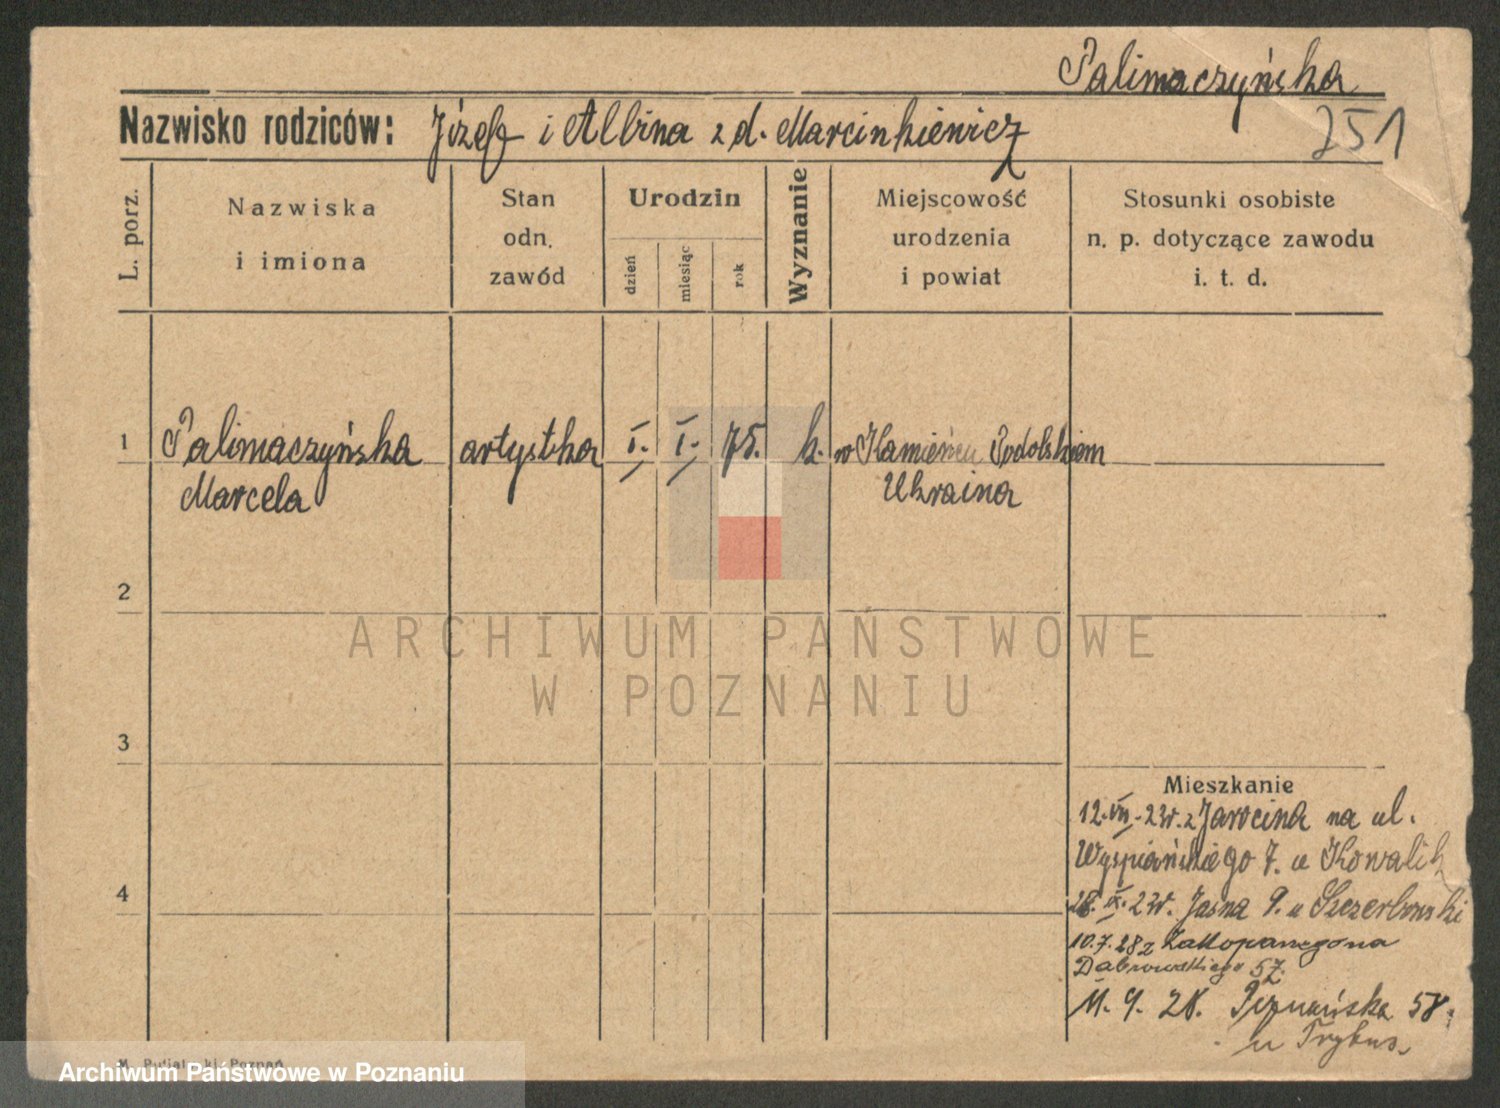 Palimaczyńska
Nazwisko rodziców: Józef i Albina z d. Marcinkiewicz
251
L. porz.
Nazwiska
i imiona
Stan
odn.
zawód
Urodzin
dzień
miesiąc
rok
Wyznanie
Miejscowość
urodzenia
i powiat
Stosunki osobiste
n. p. dotyczące zawodu
i. t. d.
1 Palimaczyńska artystka I. I. 75. k. w Kamieńcu Podolskiem
Marcela Ukraina
2
ARCHIWUM PAŃSTWOWE
W POZNANIU
3
Mieszkanie
12.VII.23r. z Jarocina na ul.
Wyspiańskiego 7. u Kowalik
4
28.IX.23r. Jasna 9. u Szczerbowski
10.7.28 z Zakopanego na
Dabrowskiego 57.
11.9.28. Poznańska 58.
u Trybus.
Poznań
Archiwum Państwowe w Poznaniu